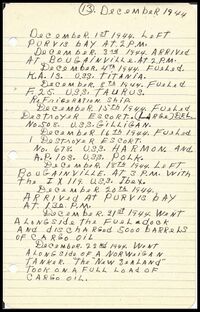 (13.) December 1944
December 1st 1944. Left
Purvis Bay at 2 P.M.
December 3rd 1944. Arrived
at Bougainville. At 2 P.M.
December 4th 1944. Fueled
K.A. 13. U.S.S. Titania.
December 8th 1944. Fueled
F. 25. U.S.S. Taurus.
Refrigeration Ship
December 15th 1944. Fueled
Destroyer Escort.
No 508. U.S.S. Gilligan.
December 16th 1944. Fueled
Destroyer Escort.
No. 678. U.S.S. Harmon. and
A.P. 103. U.S.S. Polk.
December 18th 1944. Left
Bougainville. At 3 P.M. with
the IX 119 U.S.S. Ibex.
December 20th 1944.
Arrived at Purvis Bay
at 1:30 P.M.
December 21st 1944 Went
alongside the Fueladock
and discharged 5000 barrels
of cargo oil
December 22nd 1944. Went
alongside of a Norweigan
tanker. The "New Zealand"
took on a full load of
cargo oil.